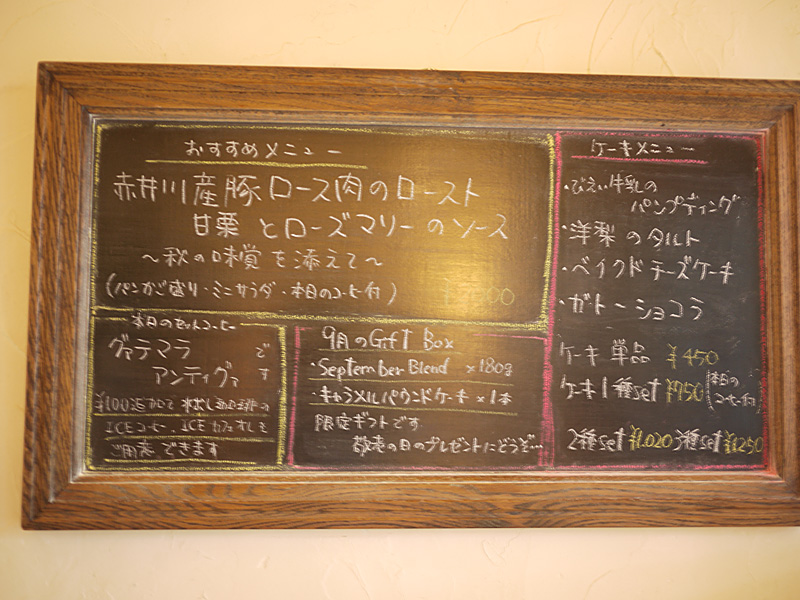 おすすめメニュー
赤井川産豚ロース肉のロースト
甘栗とローズマリーのソース
〜秋の味覚を添えて〜
(パンかご盛り・ミニサラダ・本日のコーヒー付)
本日のセットコーヒー
グァテマラ で
アンティグァ す
¥100追加で 水出し珈琲の
ICEコーヒー、ICEカフェオレも
ご用意できます
9月のGift Box
・September Blend ×180g
・キャラメルパウンドケーキ×1本
限定ギフトです
敬老の日のプレゼントにどうぞ…
ケーキメニュー
・びえい牛乳の
パンプディング
・洋梨のタルト
・ベイクドチーズケーキ
・ガトーショコラ
ケーキ単品 ¥450
ケーキ1種set ¥750 (本日のコーヒー付)
2種set ¥1,020 3種set ¥1,250